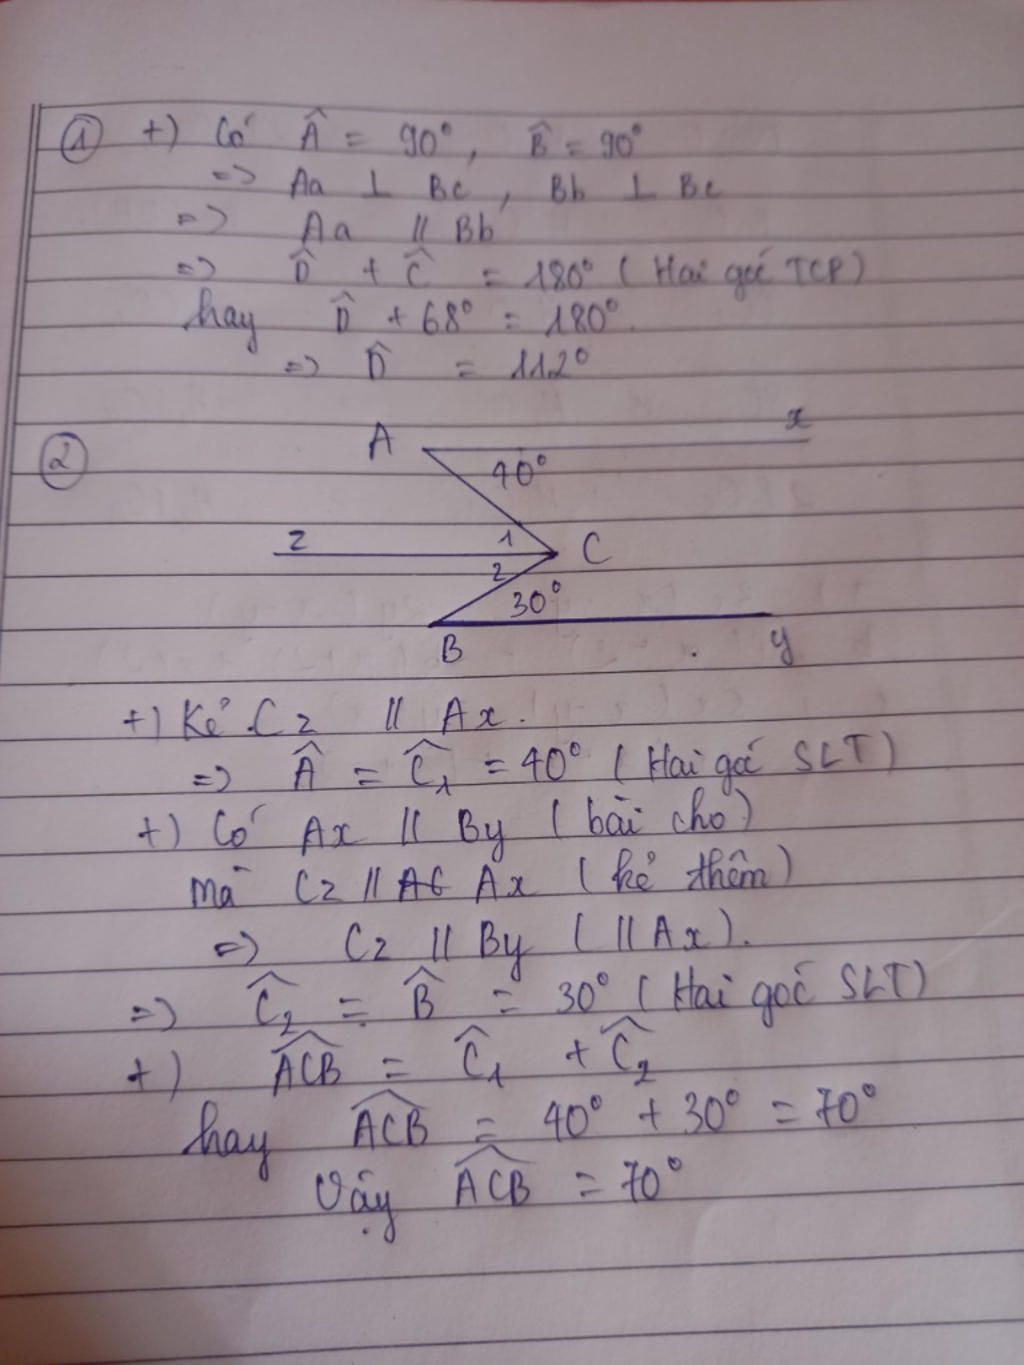 ① +) Có Â = 90°, B̂ = 90°
=> Aa ⊥ Bc, Bb ⊥ Bc
=> Aa // Bb
=> D̂ + Ĉ = 180° (Hai góc TCP)
hay D̂ + 68° = 180°.
=> D̂ = 112°
②
A x
40°
z 1 C
2
30°
B y
+) Kẻ Cz // Ax.
=> Â = Ĉ₁ = 40° (Hai góc SLT)
+) Có Ax // By (bài cho)
Mà Cz // AC Ax (kẻ thêm)
=> Cz // By (// Ax).
=> Ĉ₂ = B̂ = 30° (Hai góc SLT)
+) ACB̂ = Ĉ₁ + Ĉ₂
hay ACB̂ = 40° + 30° = 70°
Vậy ACB̂ = 70°